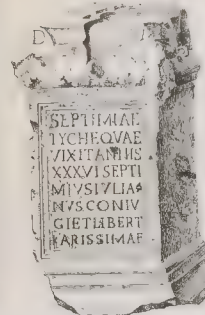 D M
SEPTIMIAE
TYCHEQVAE
VIXITANNIS
XXXVI SEPTI
MIVSIVLIA
NVSCONIV
GIETLIBERT
KARISSIMAE